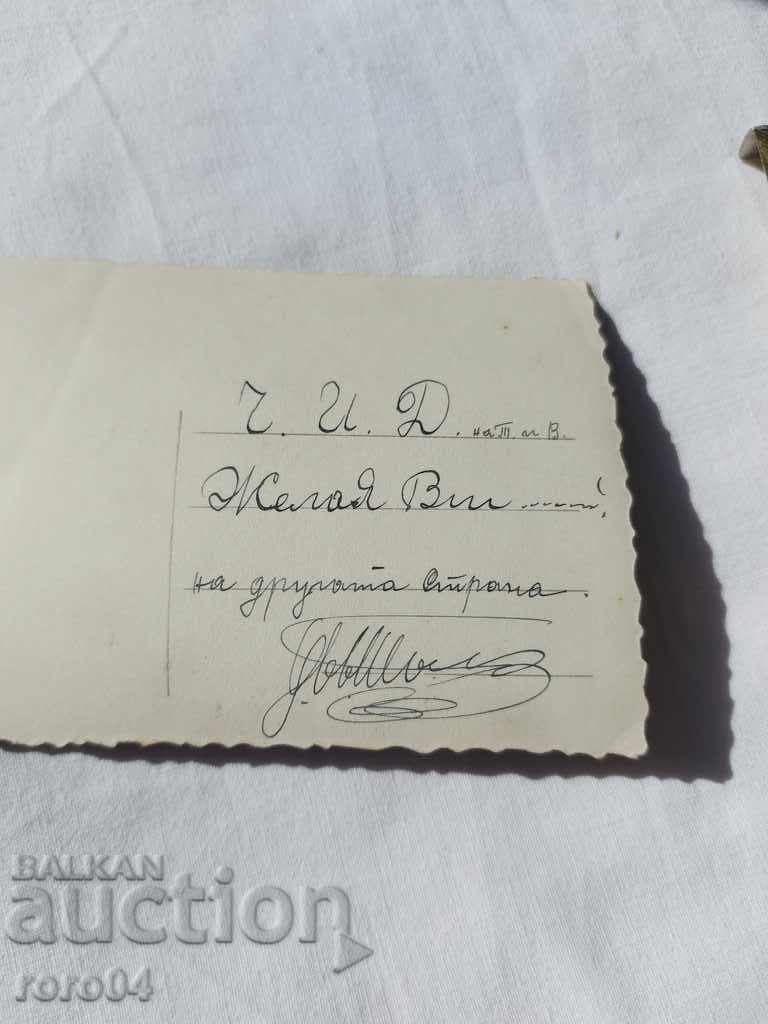 Ч. И. Д. на Т. и В.
Желая Ви ......!
на другата страна.
BALKAN
auction
roro04